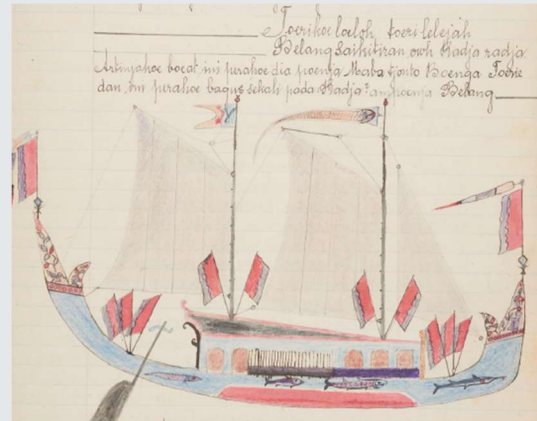 Toerikoe loeloh toeri lelejah
Belang saihitiran owh Radja radja.
Artinjahoe bocat ini perahoe dia poenja Maba tjonto Boenga Toerie
dan ini perahoe bagus sekali pada Radja² ampoenja Belang